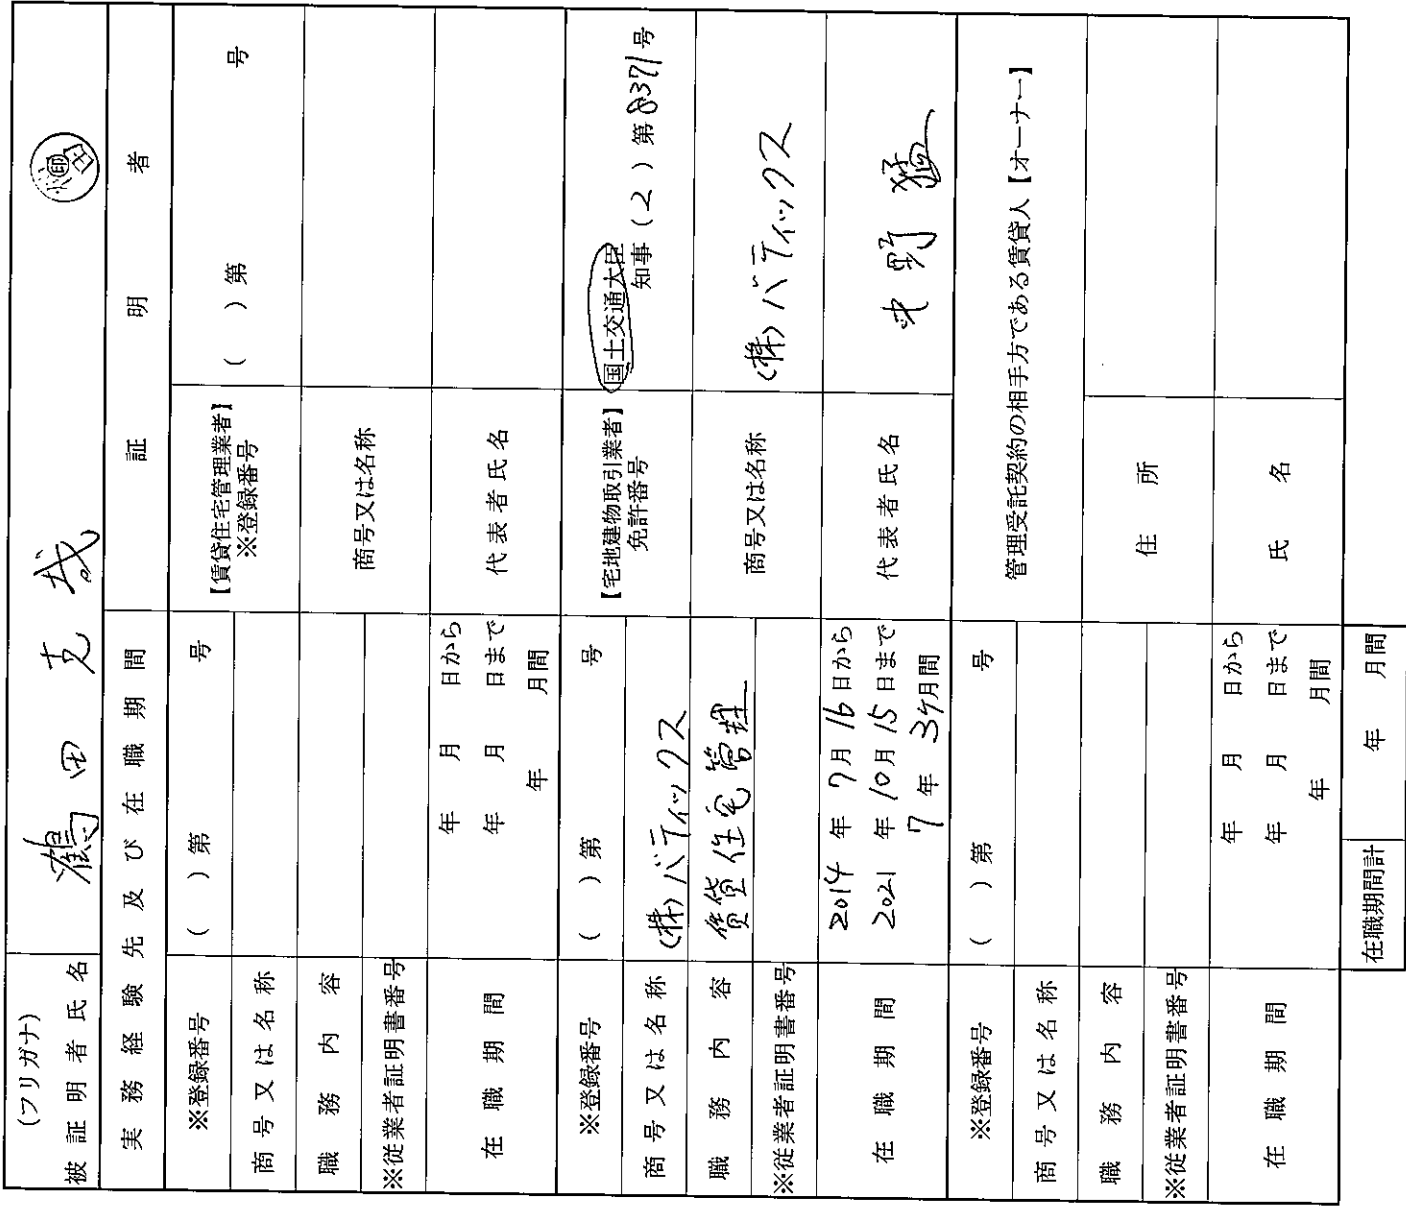 (フリガナ)
被証明者氏名 鶴田克哉 ㊞
実務経験先及び在職期間 証明者
※登録番号 ( )第 号 【賃貸住宅管理業者】※登録番号 ( )第 号
商号又は名称 商号又は名称
職務内容
※従業者証明書番号 代表者氏名
在職期間 年 月 日から
年 月 日まで
年 月間
※登録番号 ( )第 号 【宅地建物取引業者】免許番号 国土交通大臣
知事 (2) 第8371号
商号又は名称 (株)バティックス 商号又は名称 (株)バティックス
職務内容 賃貸住宅管理
※従業者証明書番号 代表者氏名 野 猛
在職期間 2014年7月16日から
2021年10月15日まで
7年3ケ月間
※登録番号 ( )第 号 管理受託契約の相手方である賃貸人【オーナー】
商号又は名称 住所
職務内容
※従業者証明書番号 氏名
在職期間 年 月 日から
年 月 日まで
年 月間
在職期間計 年 月間